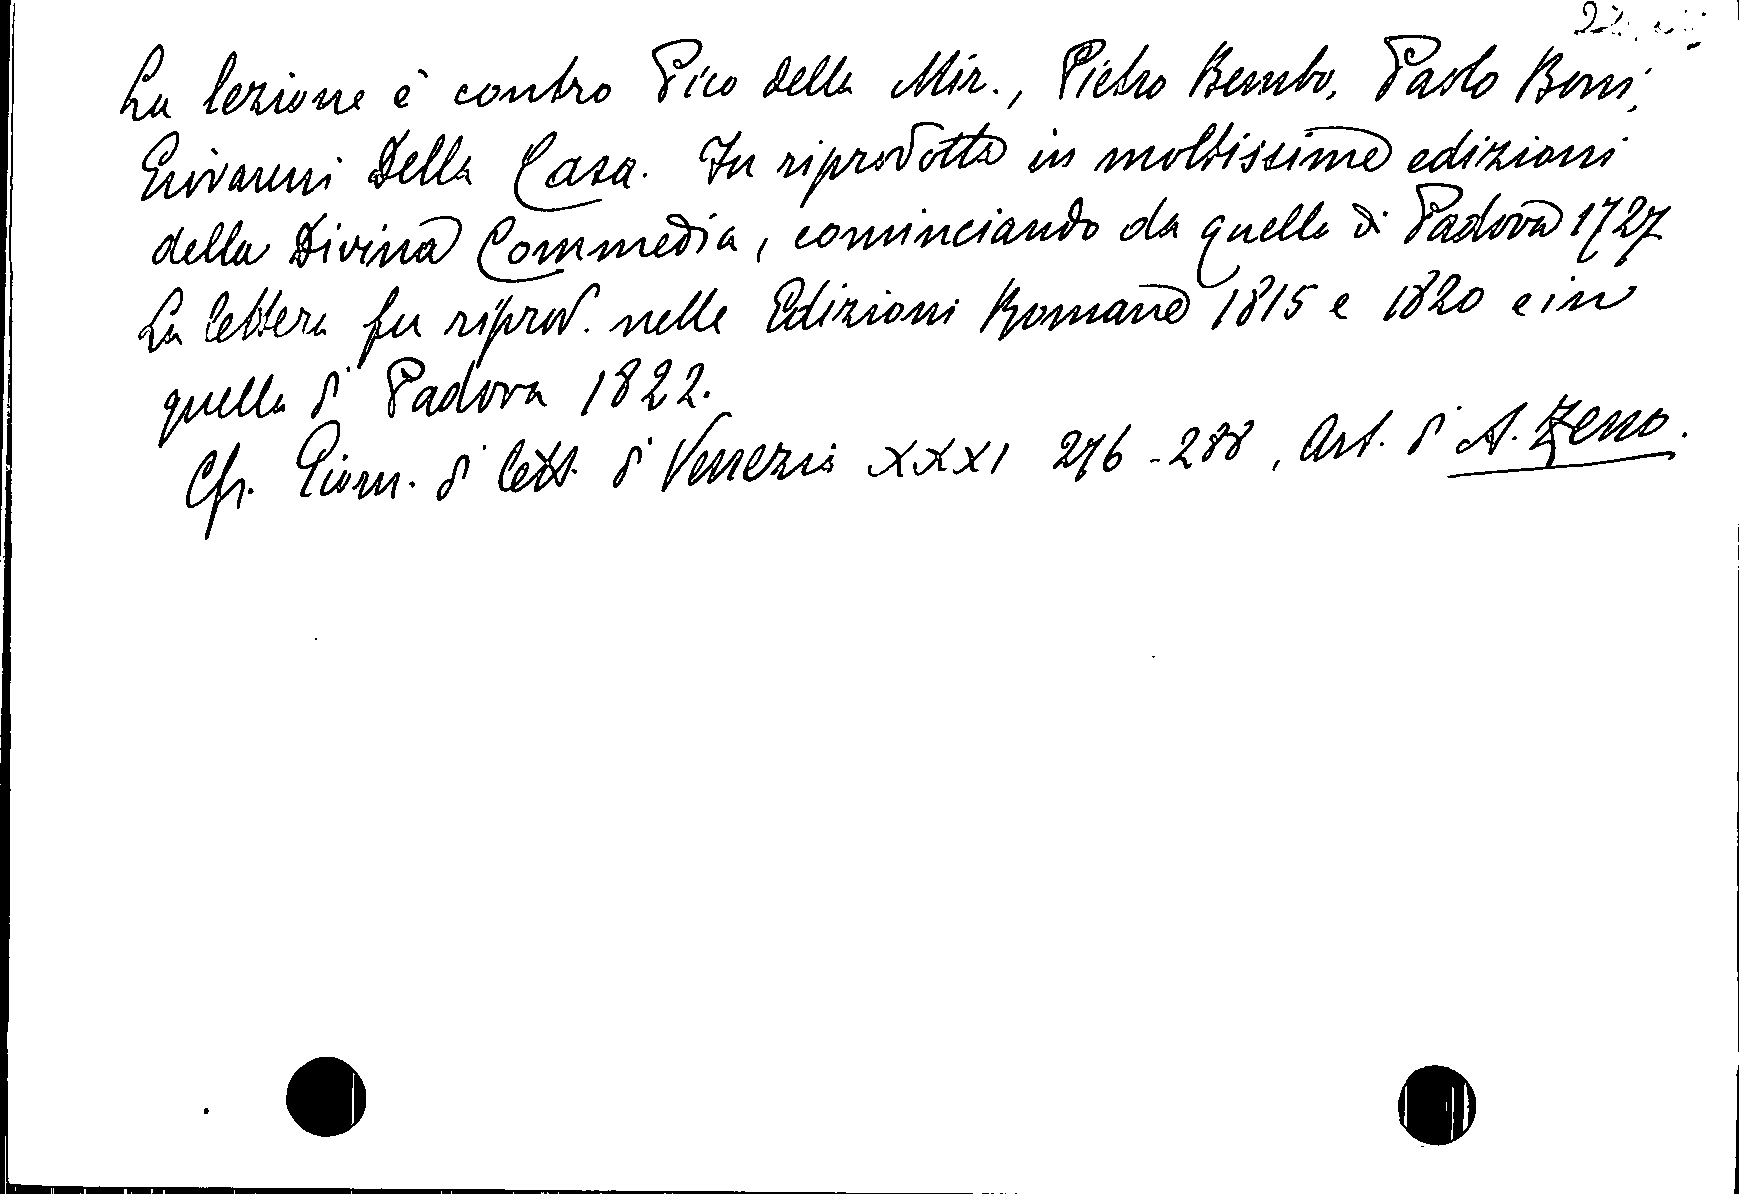 La lezione è contro Pico della Mir., Pietro Bembo, Paolo Beni,
Giovanni Della Casa. Fu riprodotta in moltissime edizioni
della Divina Commedia, cominciando da quella di Padova 1727
La lettera fu riprod. nelle Edizioni Romane 1815 e 1820 e in
quella di Padova 1822.
Cfr. Giorn. di lett. di Venezia XXXI 276-288, Art. di A. Zeno.